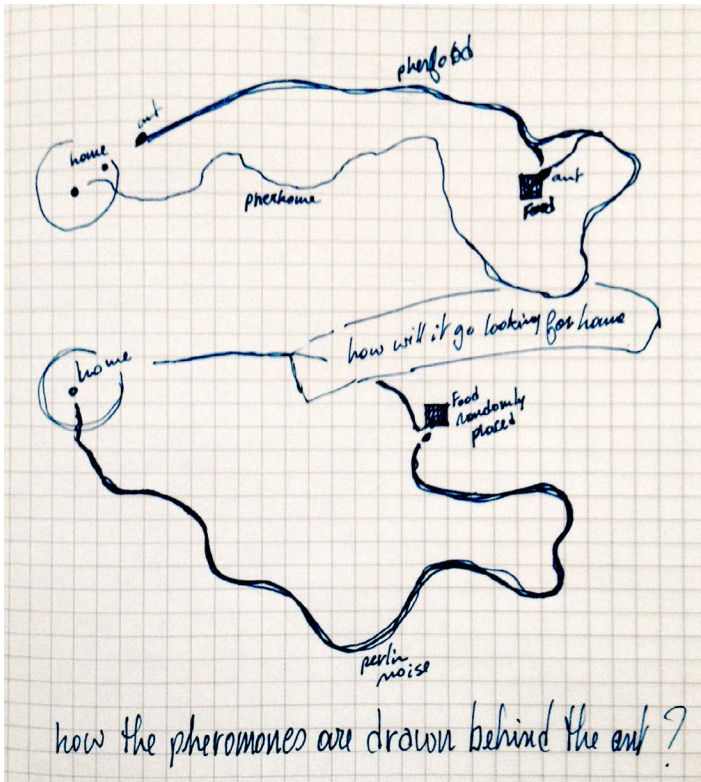 pherfood
ant
home
pherhome
ant
Food
how will it go looking for home
home
Food
randomly
placed
perlin
noise
how the pheromones are drawn behind the ant ?